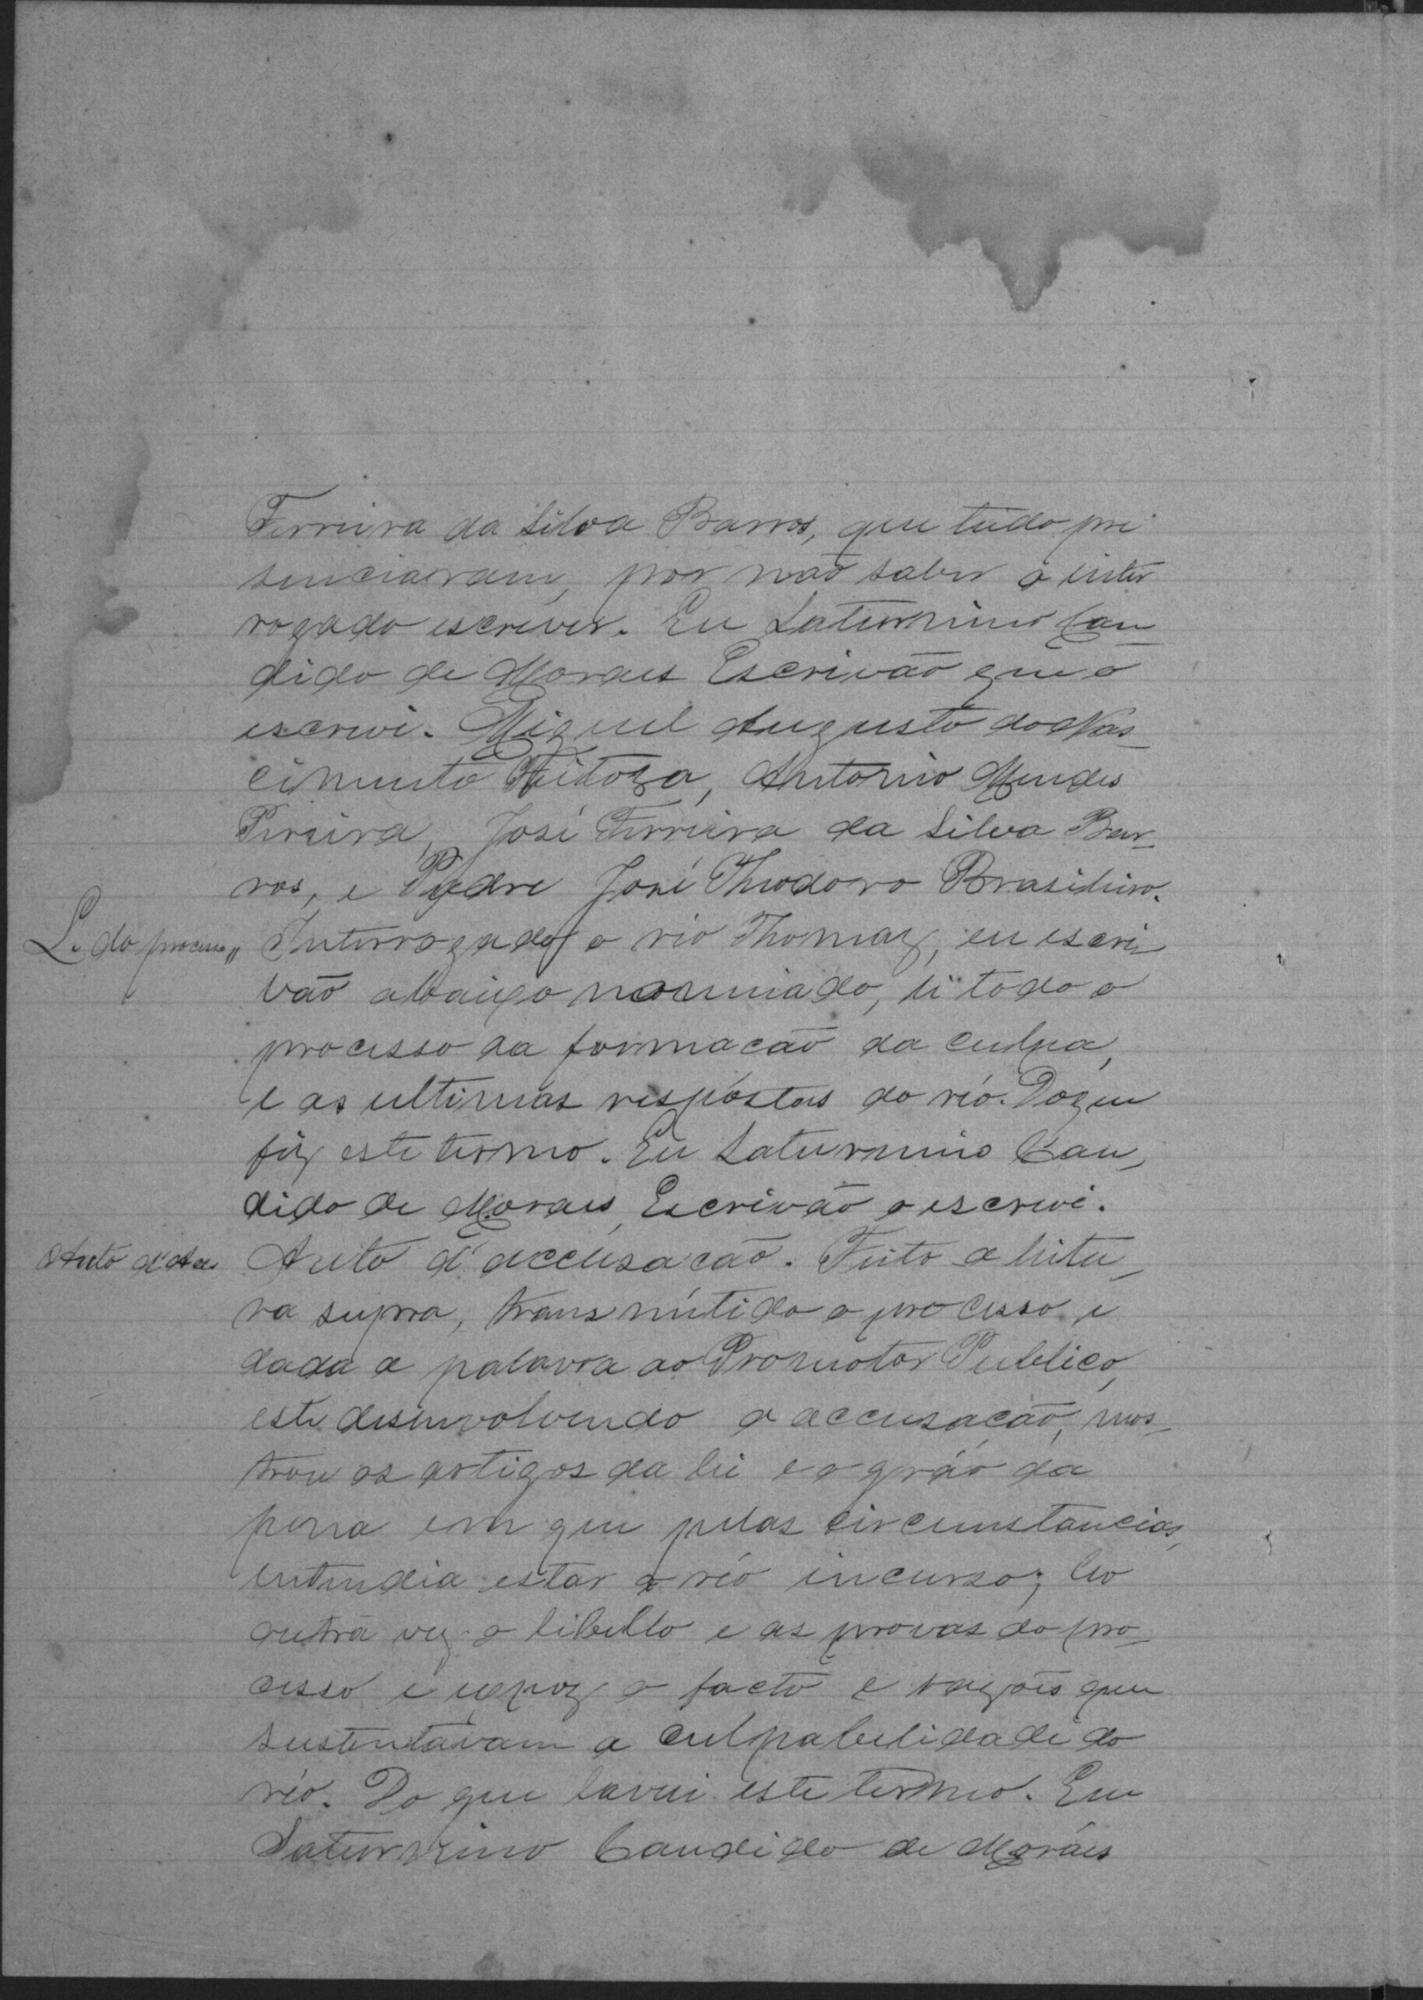 Ferreira da Silva Barros, que tudo pre
senciaram, por não saber o inter
rogado escrever. Eu Saturnino Can_
dido de Moraes Escrivão que o
escrevi. Miguel Augusto do Nas_
cimento Feitoza, Antonio Mendes
Pereira, José Ferreira da Silva Bar_
ros, e Padre José Theodoro Brasileiro.
L. do processo" Interrogado o réo Thomaz, eu escri_
vão abaixo nomiado, li todo o
processo da formacão da culpa,
e as ultimas respostas do réo. Do que
fiz este termo. Eu Saturnino Can_
dido de Moraes, Escrivão o escrevi.
Auto d'Acc Auto d'accusacão. Feito a leitu_
ra supra, transmitido o processo e
dada a palavra ao Promotor Publico,
este desenvolvendo a accusacão, mos_
trou os artigos da lei e o gráo da
pena em que pelas circumstancias,
entendia estar o réo incurso; leo
outra vez o libello e as provas do pro_
cesso e expoz o facto e razões que
sustentavam a culpabelidade do
réo. Do que lavrei este termo. Eu
Saturnino Candido de Moraes